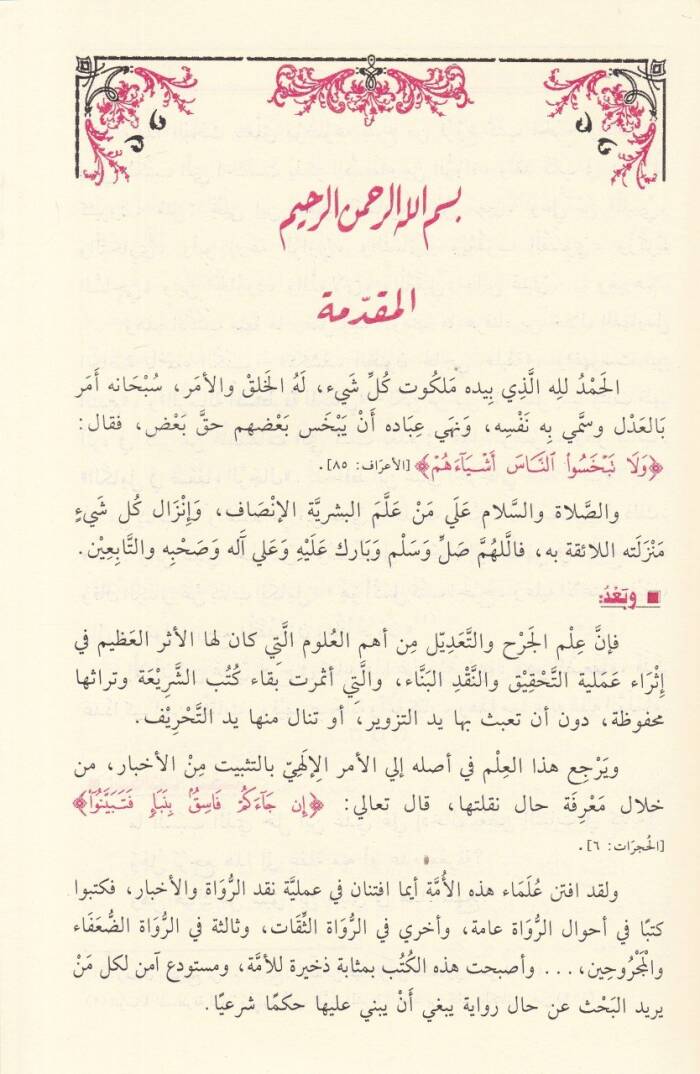 بسم الله الرحمن الرحيم
المقدّمة
الحَمْدُ للهِ الَّذِي بِيده مَلكُوت كُلِّ شَيء، لَهُ الخَلقْ والأمَر، سُبْحَانه أمَر
بَالعَدْل وسمَّي بِه نَفْسِه، وَنَهي عِبَاده أَنْ يَبْخَس بَعْضهم حقَّ بَعْض، فقال:
﴿وَلَا تَبْخَسُوا۟ ٱلنَّاسَ أَشْيَآءَهُمْ﴾ [الأعرَاف: ٨٥].
والصَّلاة والسَّلام عَلَي مَنْ عَلَّمَ البشريَّة الإنْصَاف، وَإِنْزَال كُل شَيءٍ
مَنْزَلَته اللائقة به، فاللَّهُمَّ صَلِّ وَسَلْم وَبَارك عَلَيْهِ وَعَلي آَله وَصَحْبِه والتَّابِعِيْن.
وبَعْدُ:
فإنَّ عِلْم الجَرْح والتَّعَدِيْل مِن أهم العُلوم الَّتِي كان لها الأثر العَظيم في
إِثْرَاء عَمَلية التَّحْقِيْق والنَّقْدِ البَنَّاء، والَّتِي أثمْرت بقاء كُتُب الشَّرِيْعَة وتراثها
محفوظة، دون أن تعبث بها يد التزوير، أو تنال منها يد التَّحْرِيْف.
ويَرْجِع هذا العِلْم في أصله إلي الأمر الإِلَهِيّ بالتثبيت مِنْ الأخبار، من
خلال مَعْرِفَة حال نقلتها، قال تعالي: ﴿إِن جَآءَكُمْ فَاسِقٌۢ بِنَبَإٍ فَتَبَيَّنُوٓا۟﴾
[الحُجرَات: ٦].
ولقد افتن عُلَمَاء هذه الأُمَّة أيما افتنان في عمليَّة نقد الرُّوَاة والأخبار، فكتبوا
كتبًا في أحوال الرُّوَاة عامة، وأخري في الرُّوَاة الثِّقَات، وثالثة في الرُّوَاة الضُّعَفَاء
والْمَجْرُوحِين، ... وأصبحت هذه الكُتُب بمثابة ذخيرة للأمَّة، ومستودع آمن لكل مَنْ
يريد البَحْث عن حال رواية يبغي أَنْ يبني عليها حكمًا شرعيًا.